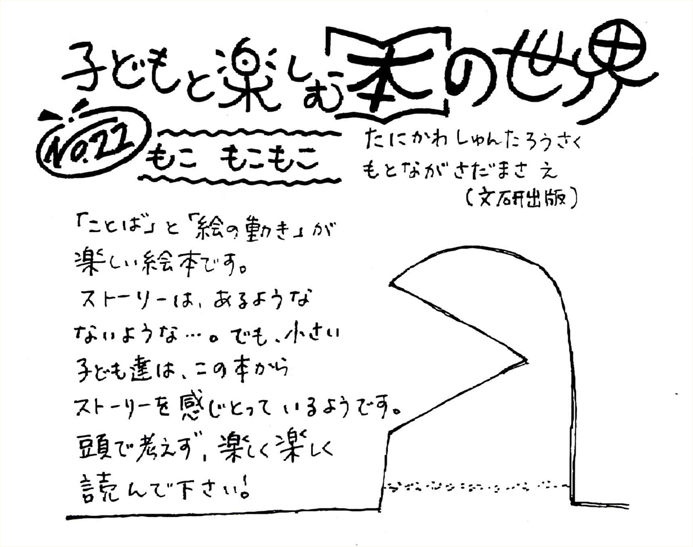 子どもと楽しむ本の世界
No.22
もこ もこもこ
たにかわしゅんたろうさく
もとながさだまさ え
(文研出版)
「ことば」と「絵の動き」が
楽しい絵本です。
ストーリーは、あるような
ないような…。でも、小さい
子ども達は、この本から
ストーリーを感じとっているようです。
頭で考えず、楽しく楽しく
読んで下さい!